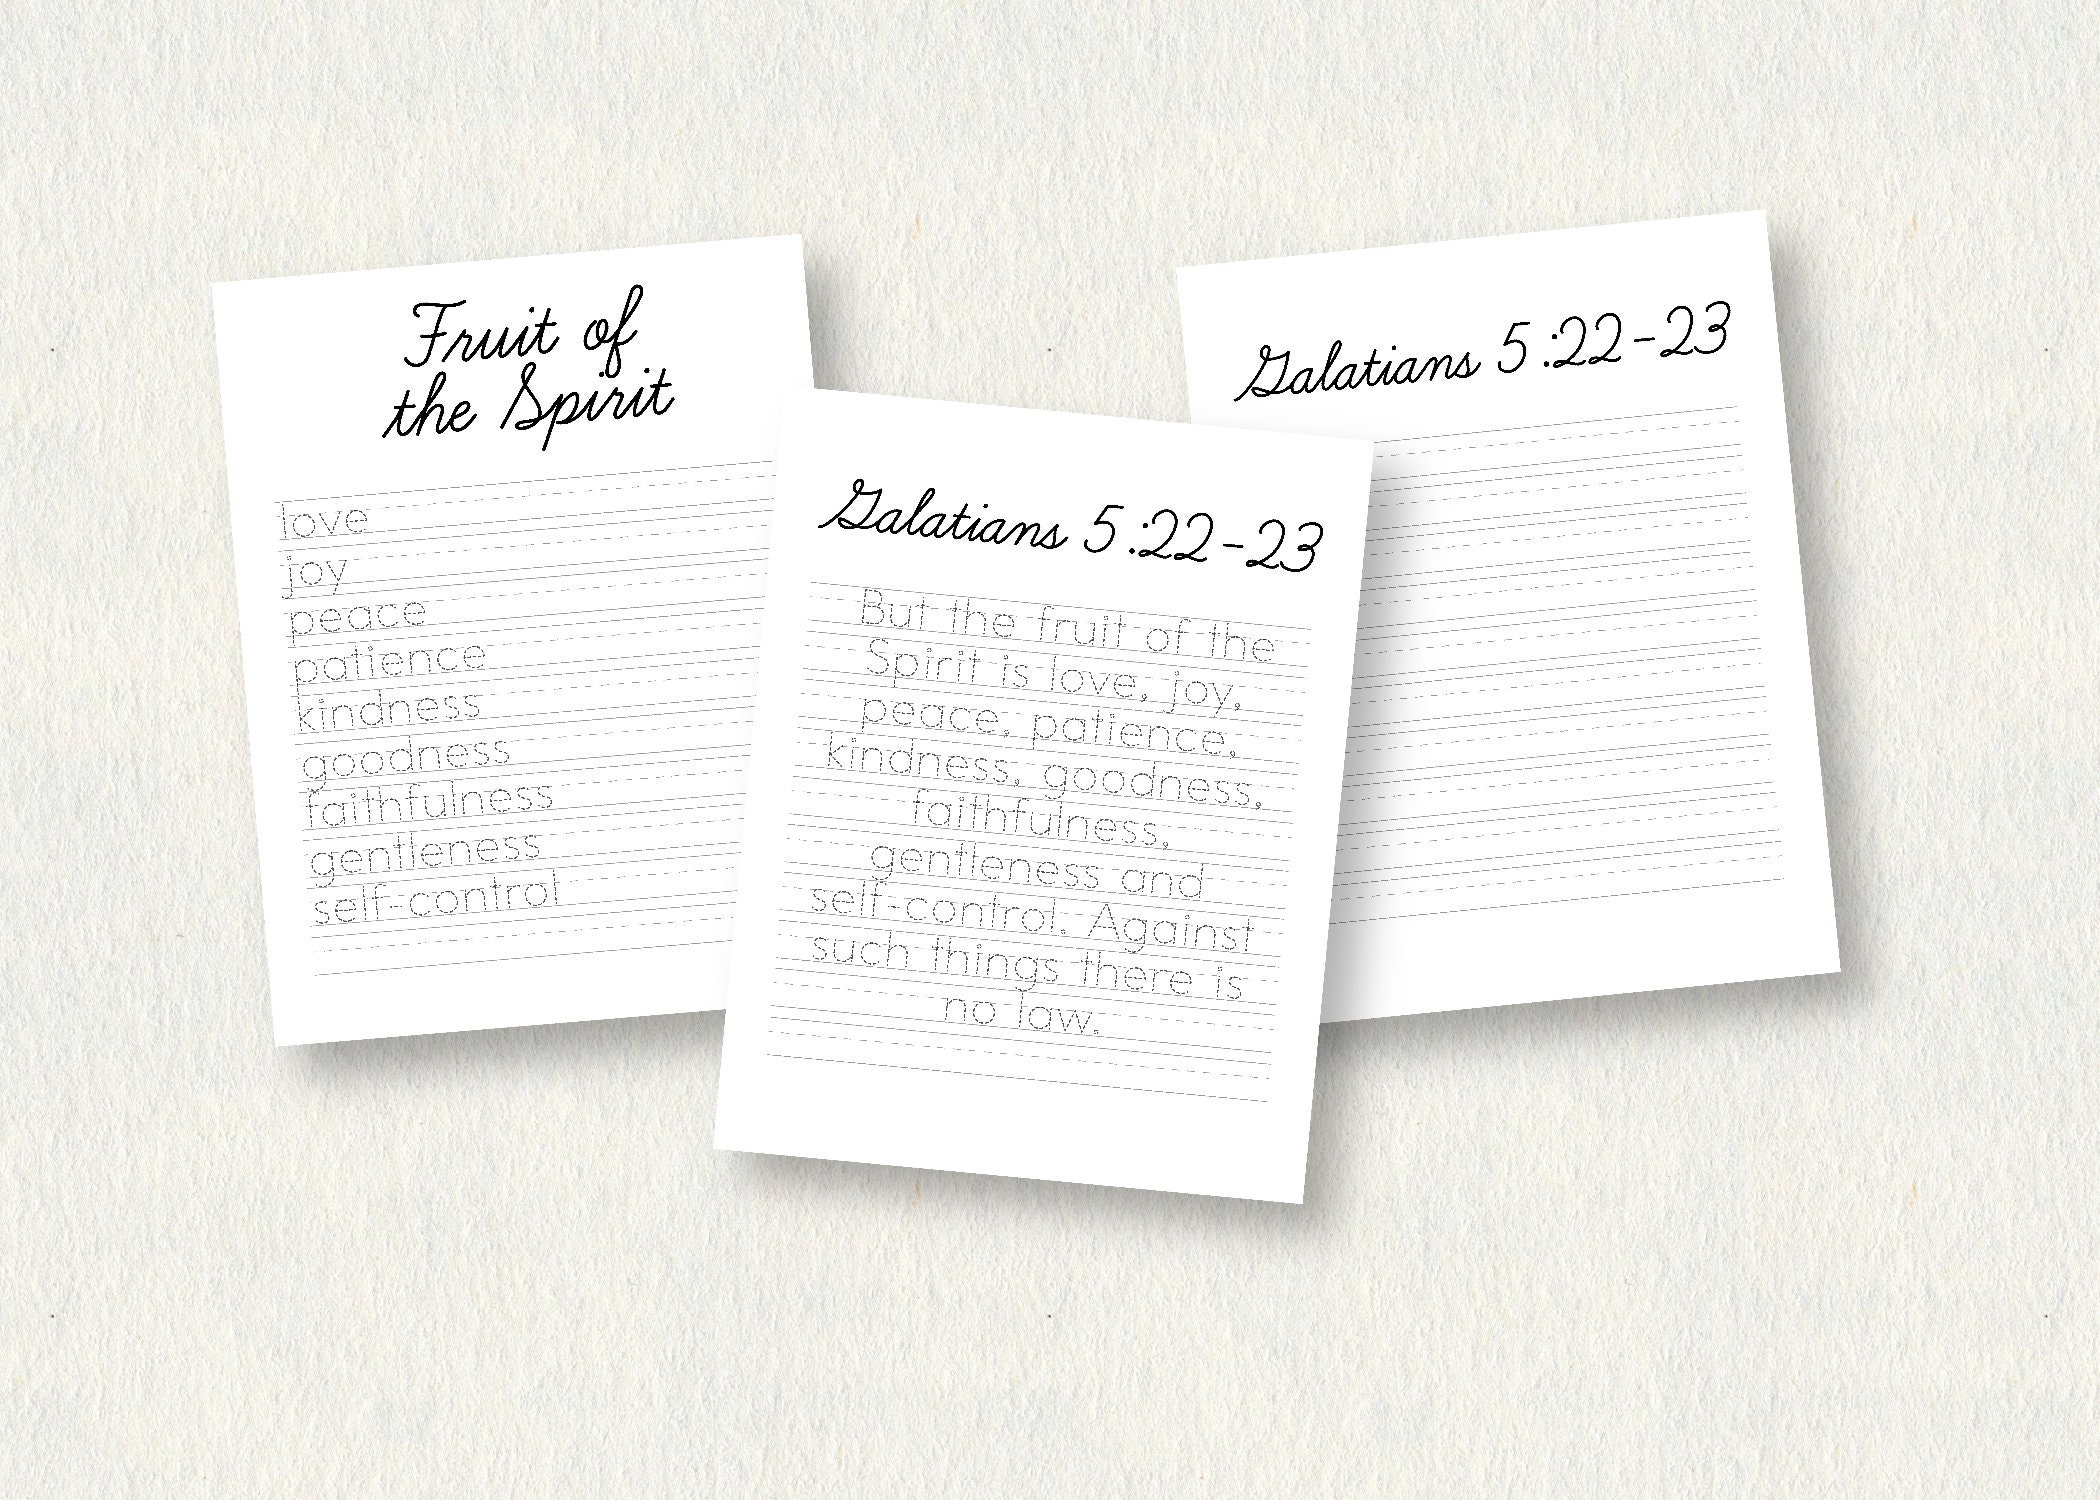 Fruit of
the Spirit
love
joy
peace
patience
kindness
goodness
faithfulness
gentleness
self-control
Galatians 5:22-23
But the fruit of the
Spirit is love, joy,
peace, patience,
kindness, goodness,
faithfulness,
gentleness and
self-control. Against
such things there is
no law.
Galatians 5:22-23